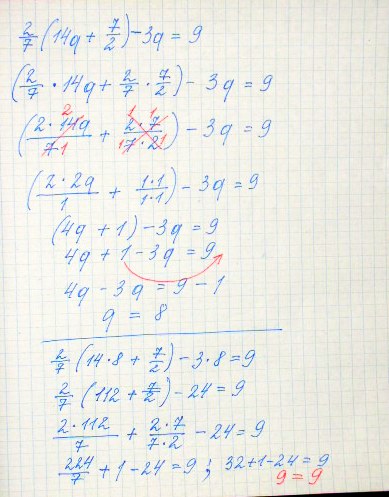 2/7 (14q + 7/2) - 3q = 9
(2/7 · 14q + 2/7 · 7/2) - 3q = 9
(2 · 14q 2 / 7 1 + 2 · 7 1 1 / 7 · 2 1 1) - 3q = 9
(2 · 2q / 1 + 1·1 / 1·1) - 3q = 9
(4q + 1) - 3q = 9
4q + 1 - 3q = 9
4q - 3q = 9 - 1
q = 8
2/7 (14·8 + 7/2) - 3·8 = 9
2/7 (112 + 7/2) - 24 = 9
2 · 112 / 7 + 2 · 7 / 7 · 2 - 24 = 9
224/7 + 1 - 24 = 9 ; 32+1-24 = 9
9 = 9